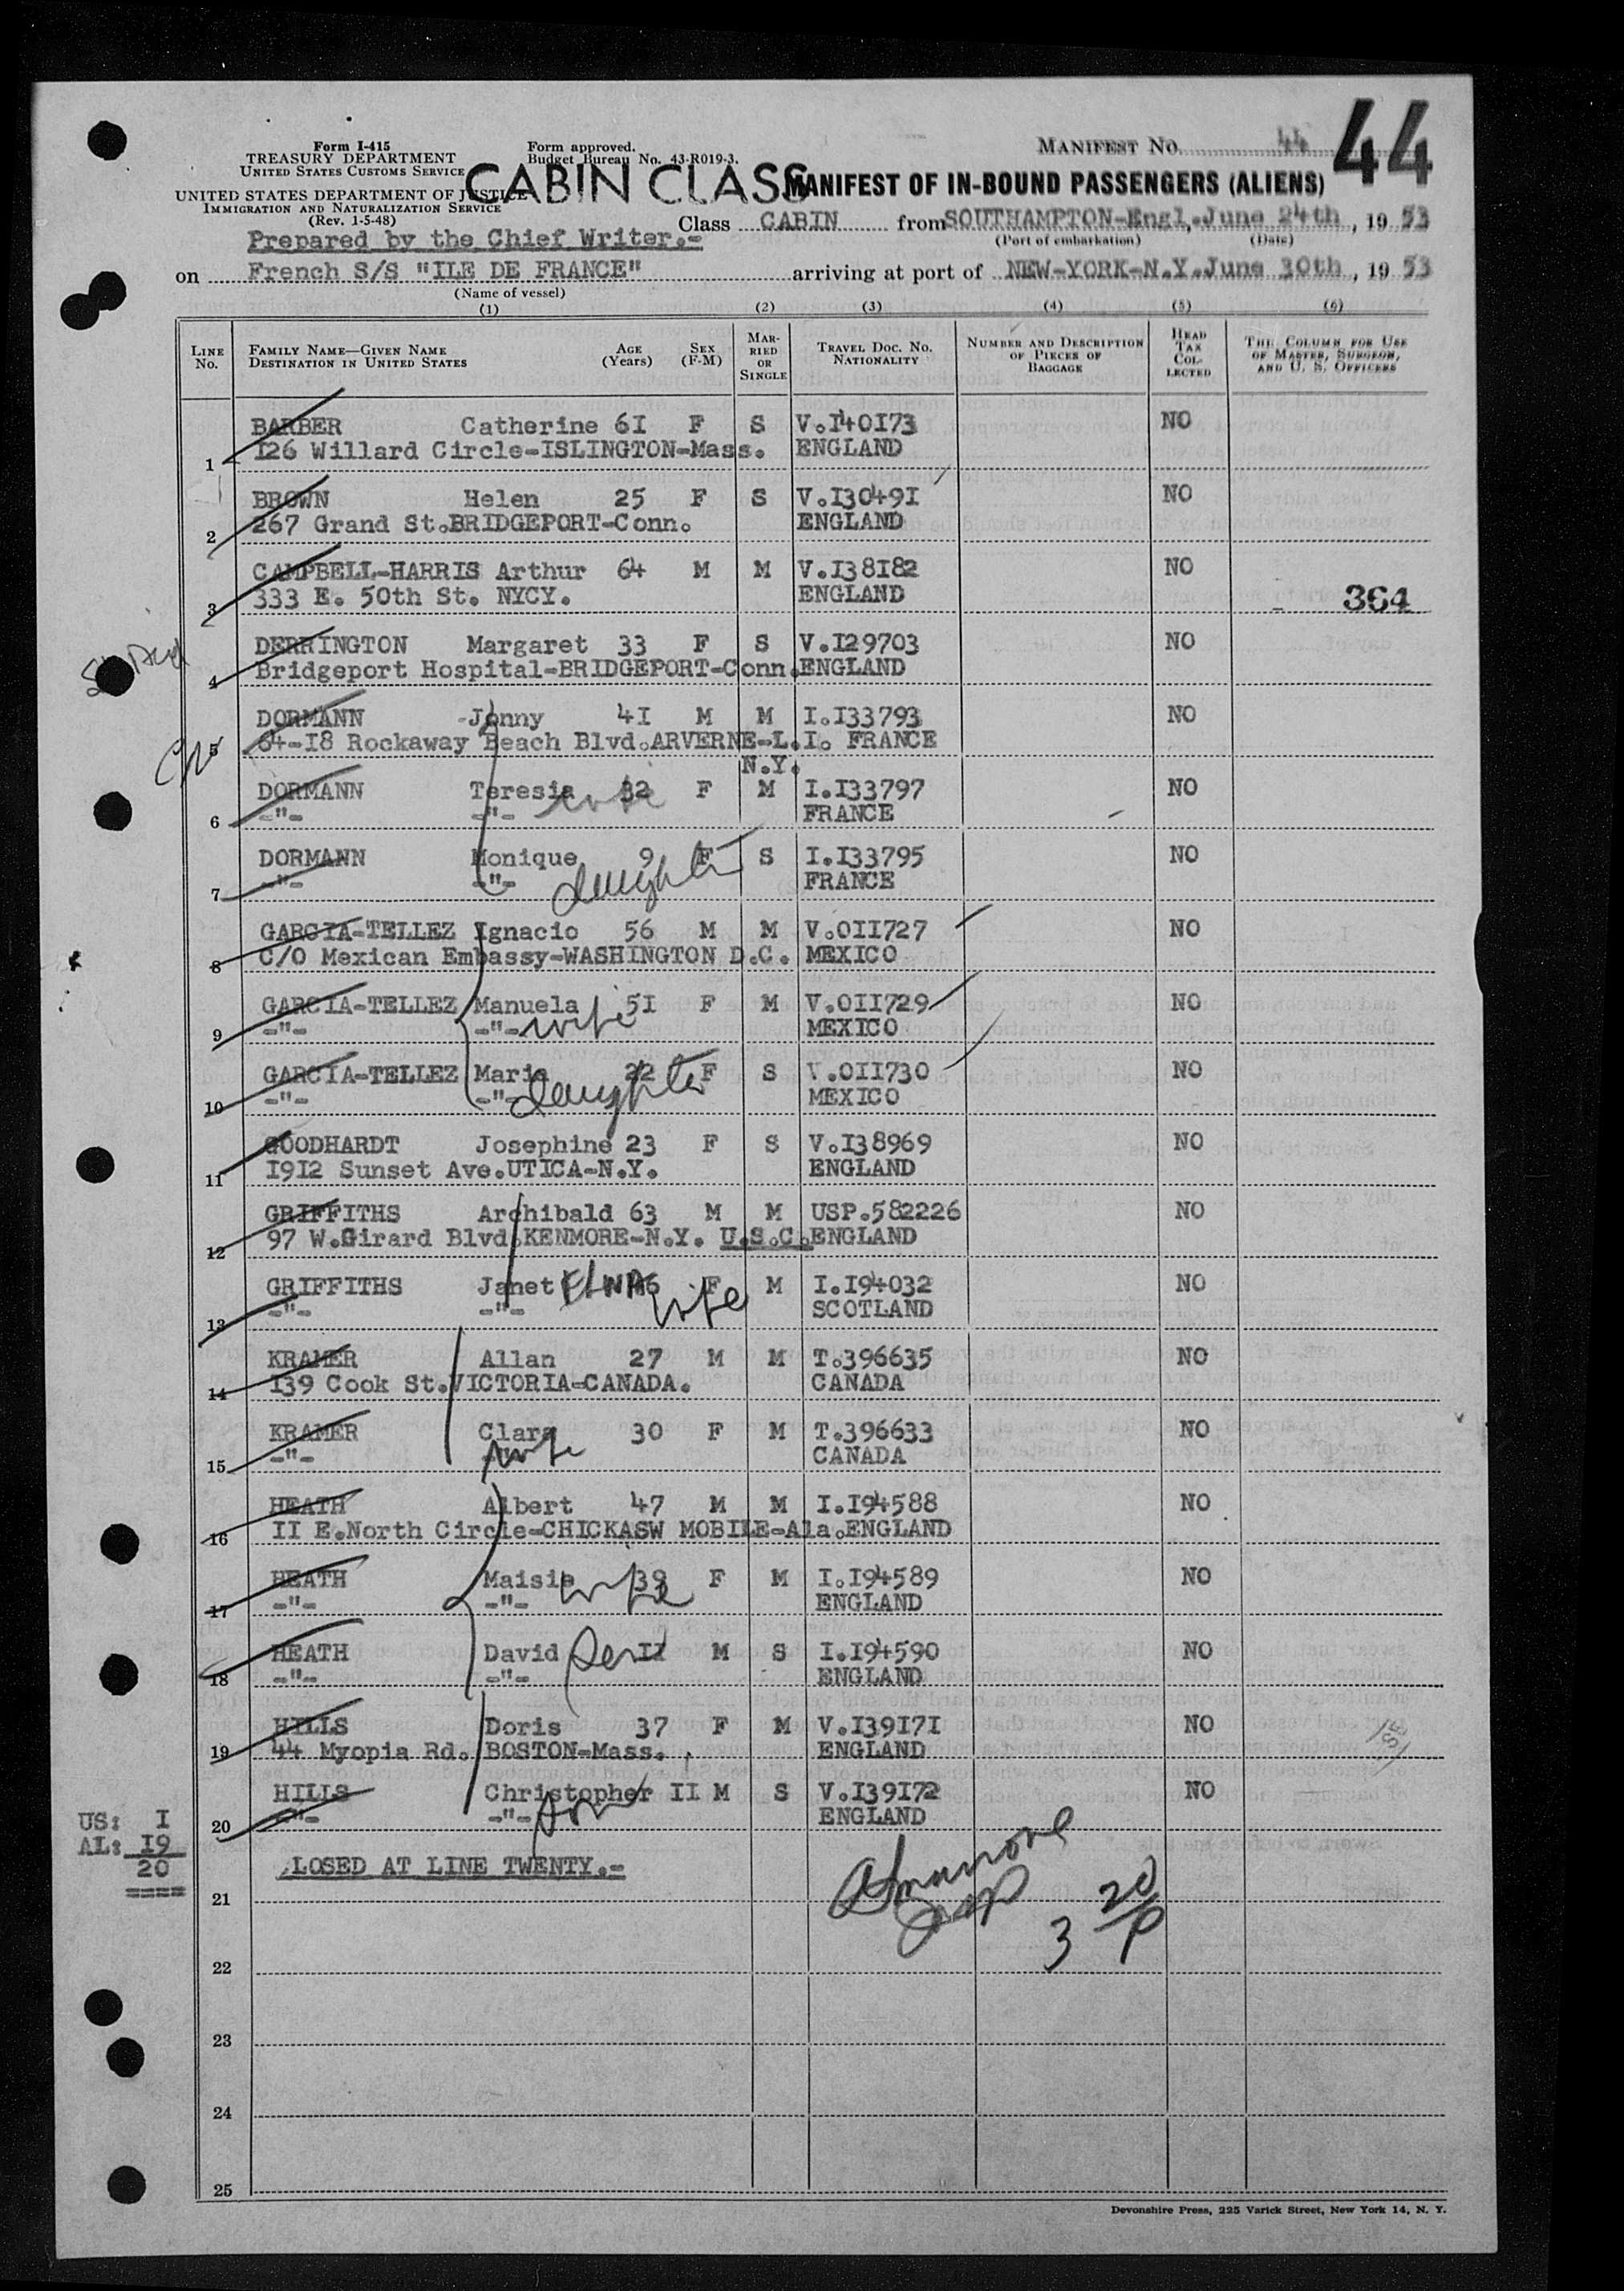 44
Form I-415
TREASURY DEPARTMENT
UNITED STATES CUSTOMS SERVICE
UNITED STATES DEPARTMENT OF JUSTICE
IMMIGRATION AND NATURALIZATION SERVICE
(Rev. 1-5-48)
Form approved.
Budget Bureau No. 43-R019-3.
MANIFEST No. 44
CABIN CLASS
MANIFEST OF IN-BOUND PASSENGERS (ALIENS)
Class CABIN from SOUTHAMPTON-Engl,-June 24th, 1953
(Port of embarkation) (Date)
Prepared by the Chief Writer.-
on French S/S "ILE DE FRANCE" arriving at port of NEW-YORK-N.Y.June 30th, 1953
(Name of vessel)
(1) (2) (3) (4) (5) (6)
LINE No.
FAMILY NAME—GIVEN NAME
DESTINATION IN UNITED STATES
AGE (Years)
SEX (F-M)
MARRIED OR SINGLE
TRAVEL DOC. NO.
NATIONALITY
NUMBER AND DESCRIPTION OF PIECES OF BAGGAGE
HEAD TAX COLLECTED
THIS COLUMN FOR USE OF MASTER, SURGEON, AND U. S. OFFICERS
BARBER Catherine 6I F S V.I40I73 NO
1 I26 Willard Circle-ISLINGTON-Mass. ENGLAND
BROWN Helen 25 F S V.I3049I NO
2 267 Grand St.BRIDGEPORT-Conn. ENGLAND
CAMPBELL-HARRIS Arthur 64 M M V.I38I82 NO
3 333 E. 50th St. NYCY. ENGLAND 364
DERRINGTON Margaret 33 F S V.I29703 NO
4 Bridgeport Hospital-BRIDGEPORT-Conn.ENGLAND
DORMANN Jonny 4I M M I.I33793 NO
5 64-I8 Rockaway Beach Blvd.ARVERNE-L.I. FRANCE
N.Y.
DORMANN Teresia 32 F M I.I33797 NO
6 -"- -"- wife FRANCE
DORMANN Monique 9 F S I.I33795 NO
7 -"- -"- daughter FRANCE
GARCIA-TELLEZ Ignacio 56 M M V.0II727 NO
8 C/O Mexican Embassy-WASHINGTON D.C. MEXICO
GARCIA-TELLEZ Manuela 5I F M V.0II729 NO
9 -"- -"- wife MEXICO
GARCIA-TELLEZ Maria 22 F S V.0II730 NO
10 -"- -"- daughter MEXICO
GOODHARDT Josephine 23 F S V.I38969 NO
11 I9I2 Sunset Ave.UTICA-N.Y. ENGLAND
GRIFFITHS Archibald 63 M M USP.582226 NO
12 97 W.Girard Blvd.KENMORE-N.Y. U.S.C.ENGLAND
GRIFFITHS Janet F M I.I94032 NO
13 -"- -"- wife SCOTLAND
KRAMER Allan 27 M M T.396635 NO
14 I39 Cook St.VICTORIA-CANADA. CANADA
KRAMER Clara 30 F M T.396633 NO
15 -"- wife CANADA
HEATH Albert 47 M M I.I94588 NO
16 II E.North Circle-CHICKASW MOBILE-Ala.ENGLAND
HEATH Maisie wife 39 F M I.I94589 NO
17 -"- -"- ENGLAND
HEATH David son II M S I.I94590 NO
18 -"- -"- ENGLAND
HILLS Doris 37 F M V.I39I7I NO
19 44 Myopia Rd. BOSTON-Mass. ENGLAND
HILLS Christopher II M S V.I39I72 NO
20 -"- -"- son ENGLAND
US: I
AL: I9
20
====
LOSED AT LINE TWENTY.-
21
3 20/P
22
23
24
25
Devonshire Press, 225 Varick Street, New York 14, N. Y.